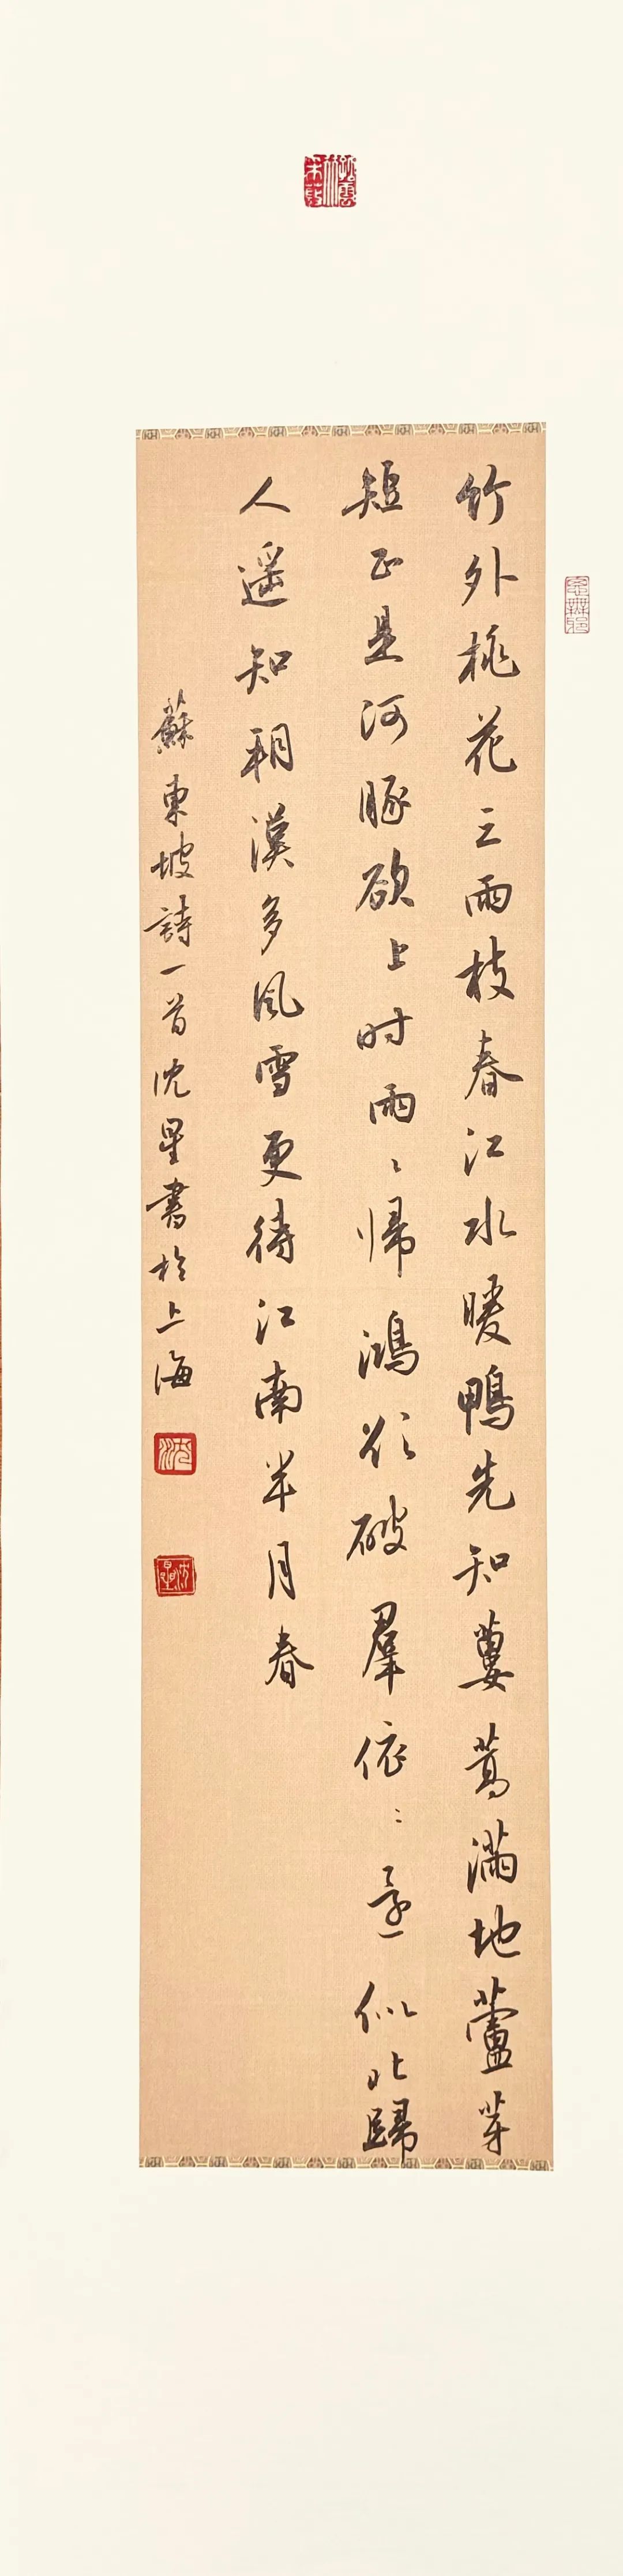 竹外桃花三兩枝春江水暖鴨先知蔞蒿滿地蘆芽
短正是河豚欲上时兩〻歸鴻欲破羣依〻還似北歸
人遥知朔漠多風雪更待江南半月春
蘇東坡詩一首沈星書於上海
沈
沈星
思無邪